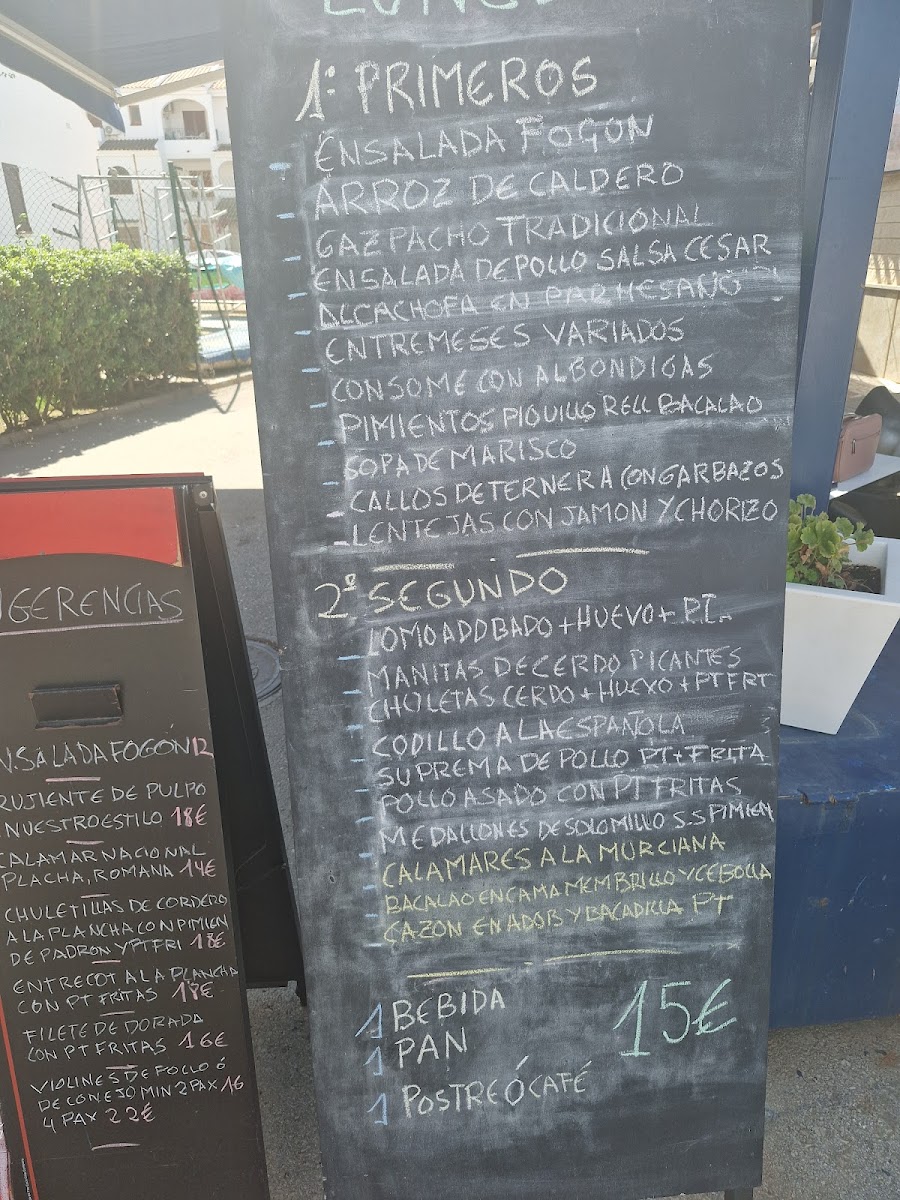 1º PRIMEROS
ENSALADA FOGON
ARROZ DE CALDERO
GAZPACHO TRADICIONAL
ENSALADA DE POLLO SALSA CESAR
ALCACHOFA EN PARMESANO
ENTREMESES VARIADOS
CONSOME CON ALBONDIGAS
PIMIENTOS PIQUILLO RELL BACALAO
SOPA DE MARISCO
CALLOS DE TERNERA CON GARBAZOS
LENTEJAS CON JAMON Y CHORIZO
2º SEGUNDO
LOMO ADOBADO + HUEVO + P.T.
MANITAS DE CERDO PICANTES
CHULETAS CERDO + HUEVO + PT FRT
CODILLO A LA ESPAÑOLA
SUPREMA DE POLLO PT + FRITA
POLLO ASADO CON PT FRITAS
MEDALLONES DE SOLOMILLO S.S PIMIEN
CALAMARES A LA MURCIANA
BACALAO EN CAMA MEMBRILLO Y CEBOLLA
CAZON EN ADOB Y BACADILLA PT
1 BEBIDA
1 PAN
1 POSTRE Ó CAFÉ
15€
UGERENCIAS
NSALADA FOGÓN 12
RUJIENTE DE PULPO
NUESTRO ESTILO 18€
CALAMAR NACIONAL
PLACHA, ROMANA 14€
CHULETILLAS DE CORDERO
A LA PLANCHA CON PIMIEN
DE PADRON Y PT FRI 18€
ENTRECOT A LA PLANCHA
CON PT FRITAS 18€
FILETE DE DORADA
CON PT FRITAS 16€
VIOLINES DE POLLO ó
DE CONEJO MIN 2 PAX 16
4 PAX 22€